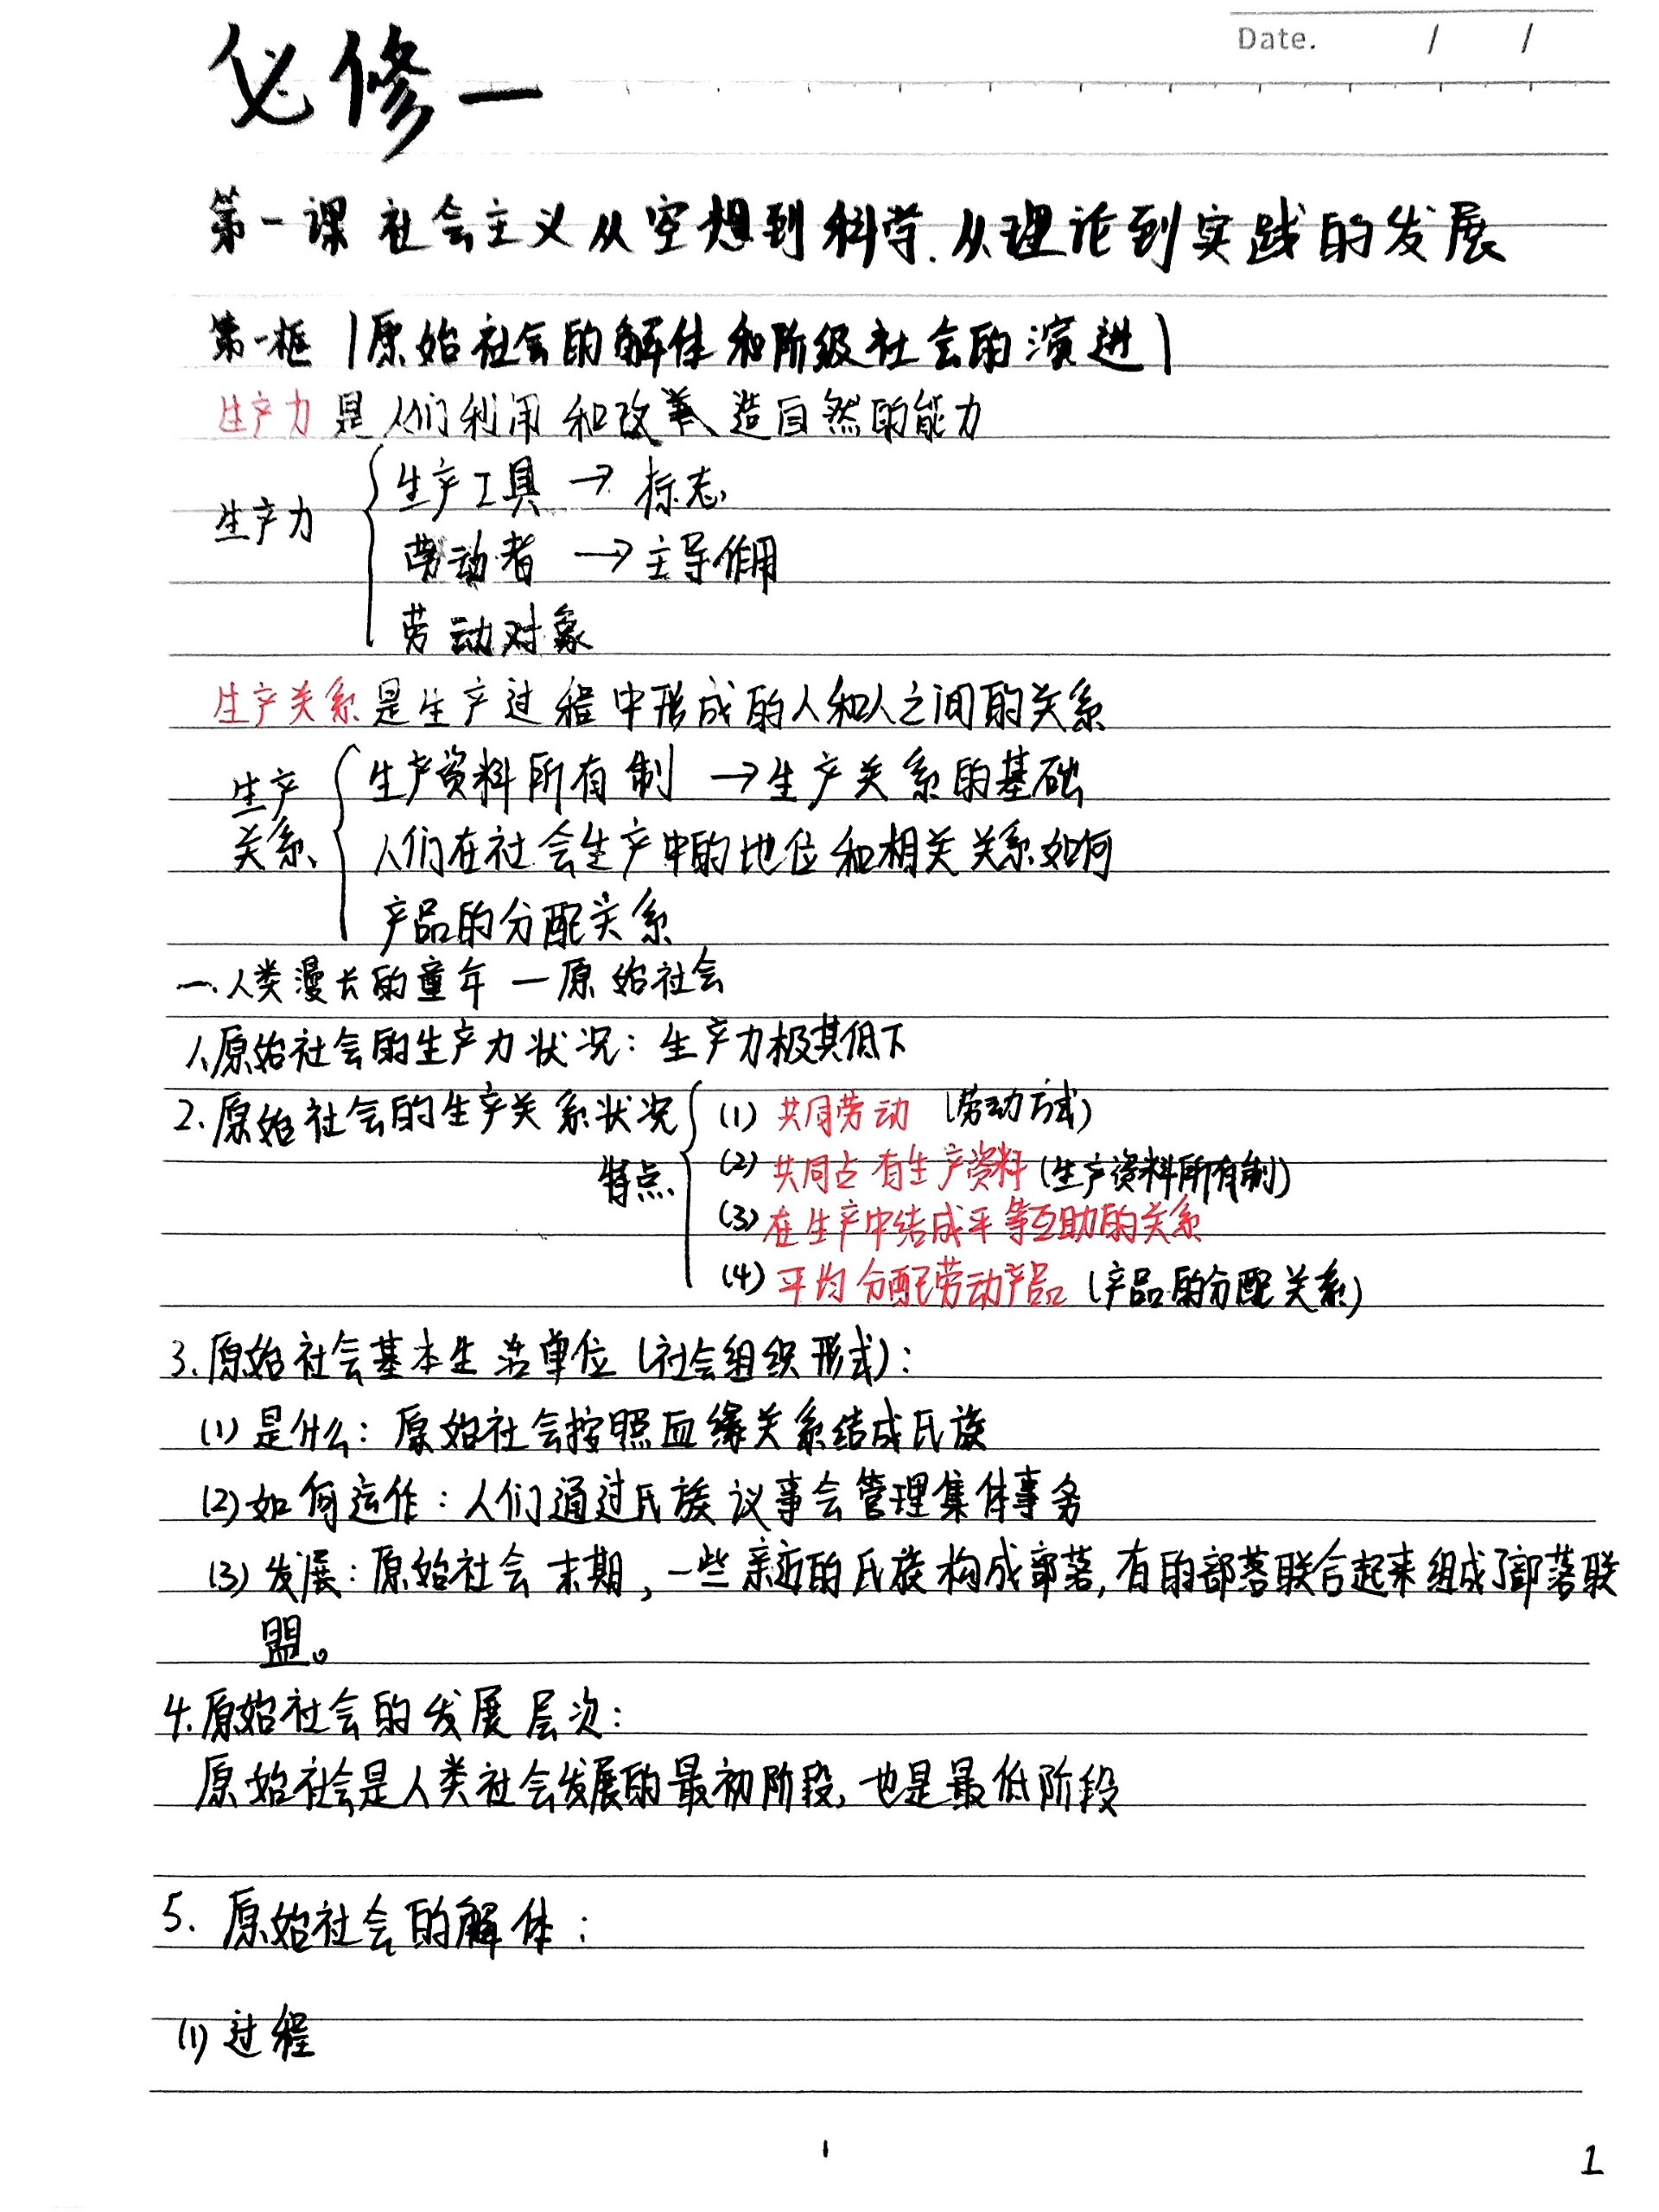 Date. / /
必修一
第一课 社会主义从空想到科学.从理论到实践的发展
第一框 |原始社会的解体和阶级社会的演进|
生产力是人们利用和改造自然的能力
生产力
生产工具 → 标志
劳动者 → 主导作用
劳动对象
生产关系是生产过程中形成的人和人之间的关系
生产关系
生产资料所有制 → 生产关系的基础
人们在社会生产中的地位和相关关系如何
产品的分配关系
一.人类漫长的童年 — 原始社会
1.原始社会的生产力状况：生产力极其低下
2.原始社会的生产关系状况
特点
(1) 共同劳动 (劳动方式)
(2) 共同占有生产资料 (生产资料所有制)
(3) 在生产中结成平等互助的关系
(4) 平均分配劳动产品 (产品的分配关系)
3.原始社会基本生活单位 (社会组织形式)：
(1) 是什么：原始社会按照血缘关系结成氏族
(2) 如何运作：人们通过氏族议事会管理集体事务
(3) 发展：原始社会末期，一些亲近的氏族构成部落,有的部落联合起来组成了部落联
盟。
4.原始社会的发展层次：
原始社会是人类社会发展的最初阶段,也是最低阶段
5. 原始社会的解体：
(1) 过程
1